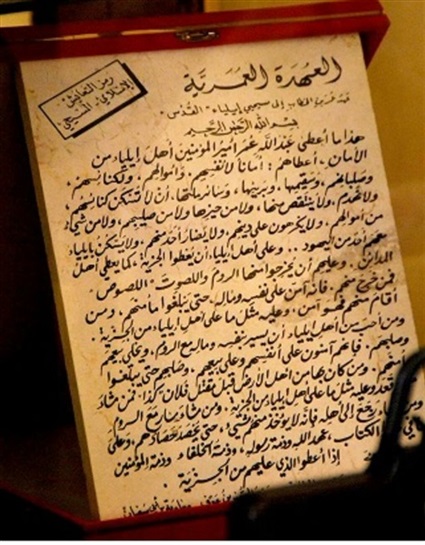 العهدة العمرية
رمز التعايش
الإسلامي المسيحي
الخطاب إلى مسيحيي إيلياء "القدس"
بسم الله الرحمن الرحيم
هذا ما أعطى عبد الله عمر أمير المؤمنين أهل إيلياء من
الأمان .. أعطاهم: أماناً لأنفسهم. وأموالهم، ولكنائسهم،
وصلبانهم، وسقيمها، وبريئها، وسائر ملتها، أن لا تسكن كنائسهم،
ولا تهدم، ولا ينتقص منها، ولا من حيزها ولا من صليبهم، ولا من شيء
من أموالهم، ولا يكرهون على دينهم، ولا يضار أحد منهم، ولا يسكن بإيلياء
معهم أحد من اليهود .. وعلى أهل إيلياء أن يعطوا الجزية، كما يعطي أهل
المدائن. وعليهم أن يخرجوا منها الروم واللصوت "اللصوص"
فمن خرج منهم. فإنه آمن على نفسه وماله. حتى يبلغوا مأمنهم، ومن
أقام منهم فهو آمن، وعليه مثل ما على أهل إيلياء من الجزية:
ومن أحب من أهل إيلياء أن يسير بنفسه، وماله مع الروم، ويخلي بيعهم
وصلبهم. فإنهم آمنون على أنفسهم وعلى بيعهم، وصلبهم حتى يبلغوا
مأمنهم. ومن كان بها من أهل الأرض قبل مقتل فلان .. كذا: فمن شاء
قعد وعليه مثل ما على أهل إيلياء من الجزية: ومن شاء سار مع الروم
ومن شاء رجع إلى أهله فإنه لا يؤخذ منهم شيء، حتى يحصد حصادهم، وعلى
الكتاب، عهد الله وذمة رسوله، وذمة الخلفاء وذمة المؤمنين
إذا أعطوا الذي عليهم من الجزية.